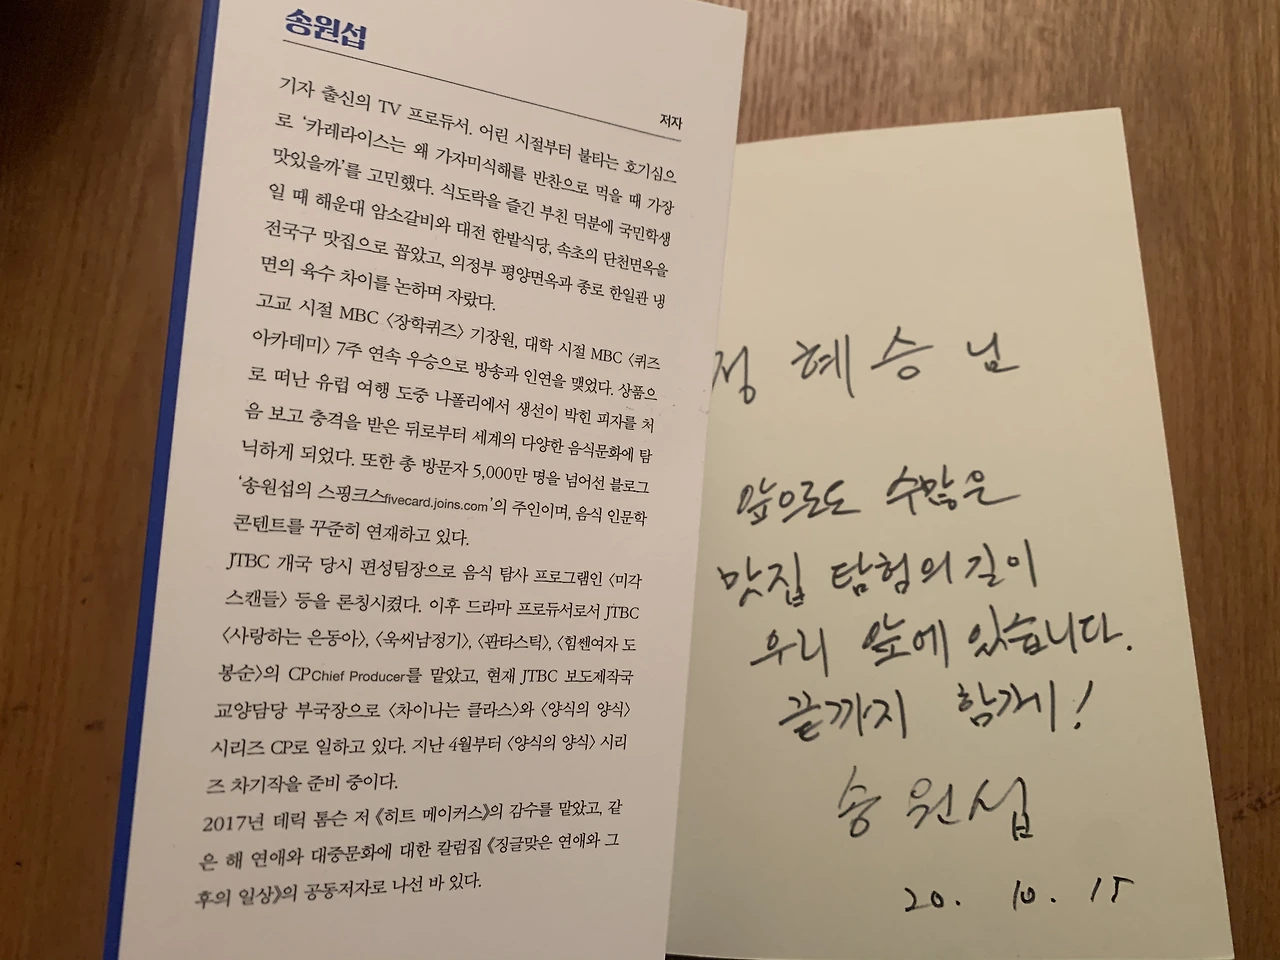 송원섭
저자
기자 출신의 TV 프로듀서. 어린 시절부터 불타는 호기심으
로 ‘카레라이스는 왜 가자미식해를 반찬으로 먹을 때 가장
맛있을까’를 고민했다. 식도락을 즐긴 부친 덕분에 국민학생
일 때 해운대 암소갈비와 대전 한밭식당, 속초의 단천면옥을
전국구 맛집으로 꼽았고, 의정부 평양면옥과 종로 한일관 냉
면의 육수 차이를 논하며 자랐다.
고교 시절 MBC 〈장학퀴즈〉 기장원, 대학 시절 MBC 〈퀴즈
아카데미〉 7주 연속 우승으로 방송과 인연을 맺었다. 상품으
로 떠난 유럽 여행 도중 나폴리에서 생선이 박힌 피자를 처
음 보고 충격을 받은 뒤로부터 세계의 다양한 음식문화에 탐
닉하게 되었다. 또한 총 방문자 5,000만 명을 넘어선 블로그
‘송원섭의 스핑크스fivecard.joins.com’의 주인이며, 음식 인문학
콘텐트를 꾸준히 연재하고 있다.
JTBC 개국 당시 편성팀장으로 음식 탐사 프로그램인 〈미각
스캔들〉 등을 론칭시켰다. 이후 드라마 프로듀서로서 JTBC
〈사랑하는 은동아〉, 〈욱씨남정기〉, 〈판타스틱〉, 〈힘쎈여자 도
봉순〉의 CPChief Producer를 맡았고, 현재 JTBC 보도제작국
교양담당 부국장으로 〈차이나는 클라스〉와 〈양식의 양식〉
시리즈 CP로 일하고 있다. 지난 4월부터 〈양식의 양식〉 시리
즈 차기작을 준비 중이다.
2017년 데릭 톰슨 저 《히트 메이커스》의 감수를 맡았고, 같
은 해 연애와 대중문화에 대한 칼럼집 《징글맞은 연애와 그
후의 일상》의 공동저자로 나선 바 있다.
정 혜 승 님
앞으로도 수많은
맛집 탐험의 길이
우리 앞에 있습니다.
끝까지 함께!
송 원 섭
20. 10. 15